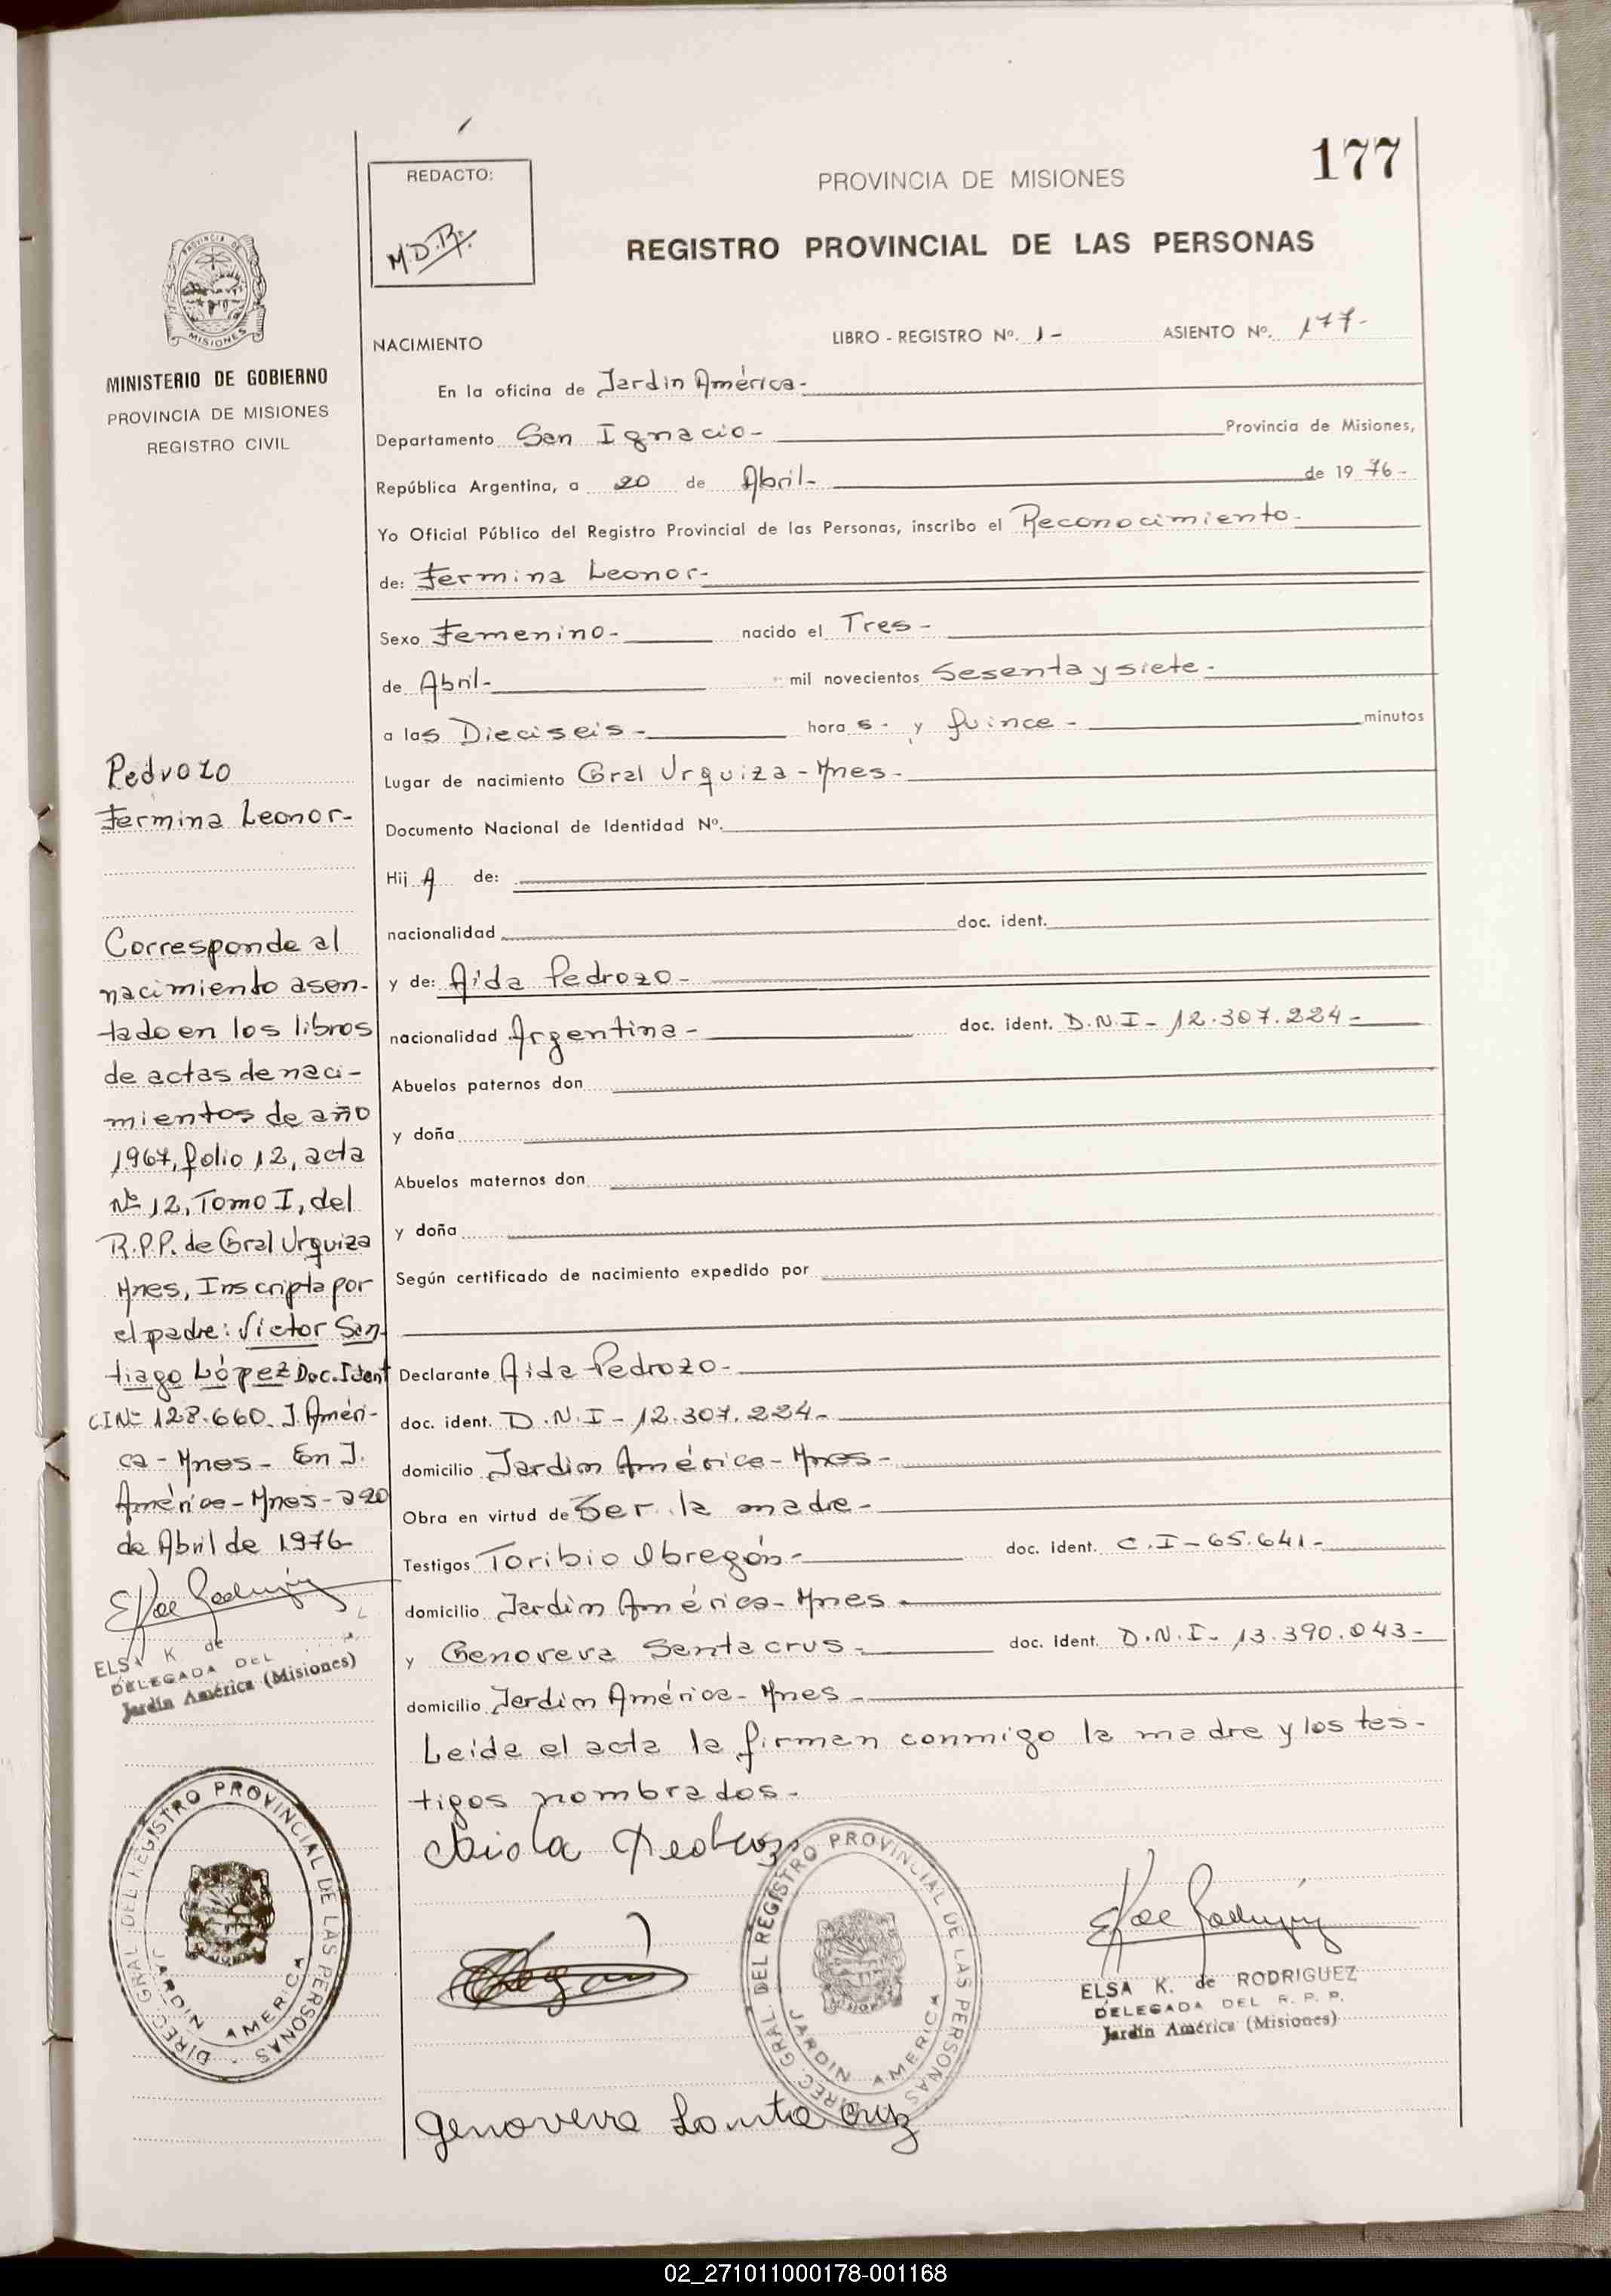 177
REDACTO:
M.D.R.
PROVINCIA DE MISIONES
REGISTRO PROVINCIAL DE LAS PERSONAS
PROVINCIA DE
MISIONES
MINISTERIO DE GOBIERNO
PROVINCIA DE MISIONES
REGISTRO CIVIL
NACIMIENTO LIBRO - REGISTRO Nº. 1- ASIENTO Nº. 177-
En la oficina de Jardin América-
Departamento San Ignacio- Provincia de Misiones,
República Argentina, a 20 de Abril- de 19 76-
Yo Oficial Público del Registro Provincial de las Personas, inscribo el Reconocimiento-
de: Fermina Leonor-
Sexo Femenino- nacido el Tres-
de Abril- mil novecientos Sesenta y siete-
a las Dieciseis- hora s- y quince- minutos
Lugar de nacimiento Gral Urquiza - Mnes-
Documento Nacional de Identidad Nº.
Hij A de:
nacionalidad doc. ident.
y de: Aida Pedrozo-
nacionalidad Argentina- doc. ident. D.N.I- 12.307.224-
Abuelos paternos don
y doña
Abuelos maternos don
y doña
Según certificado de nacimiento expedido por
Declarante Aida Pedrozo-
doc. ident. D.N.I- 12.307.224-
domicilio Jardin América- Mnes-
Obra en virtud de Ser la madre-
Testigos Toribio Obregón- doc. ident. C.I-65.641-
domicilio Jardin América- Mnes-
y Genoveva Santa crus- doc. Ident. D.N.I- 13.390.043-
domicilio Jardin América- Mnes-
Leida el acta la firman conmigo la madre y los tes-
tigos nombrados-
Pedvozo
Fermina Leonor-
Corresponde al
nacimiento asen-
tado en los libros
de actas de naci-
mientos de año
1967, folio 12, acta
Nº 12, Tomo I, del
R.P.P. de Gral Urquiza
Mnes, Inscripta por
el padre: Victor San-
tiago López Doc. Ident
CINº 128.660. J. Améri-
ca - Mnes- En J.
América- Mnes- a 20
de Abril de 1976-
ELSA K. de
DELEGADA DEL
Jardín América (Misiones)
DIREC. GRAL. DEL REGISTRO PROVINCIAL DE LAS PERSONAS
JARDIN AMERICA
Aida Pedrozo
DIREC. GRAL. DEL REGISTRO PROVINCIAL DE LAS PERSONAS
JARDIN AMERICA
ELSA K. de RODRIGUEZ
DELEGADA DEL R. P. P.
Jardín América (Misiones)
Genoveva Santa Cruz
02_271011000178-001168